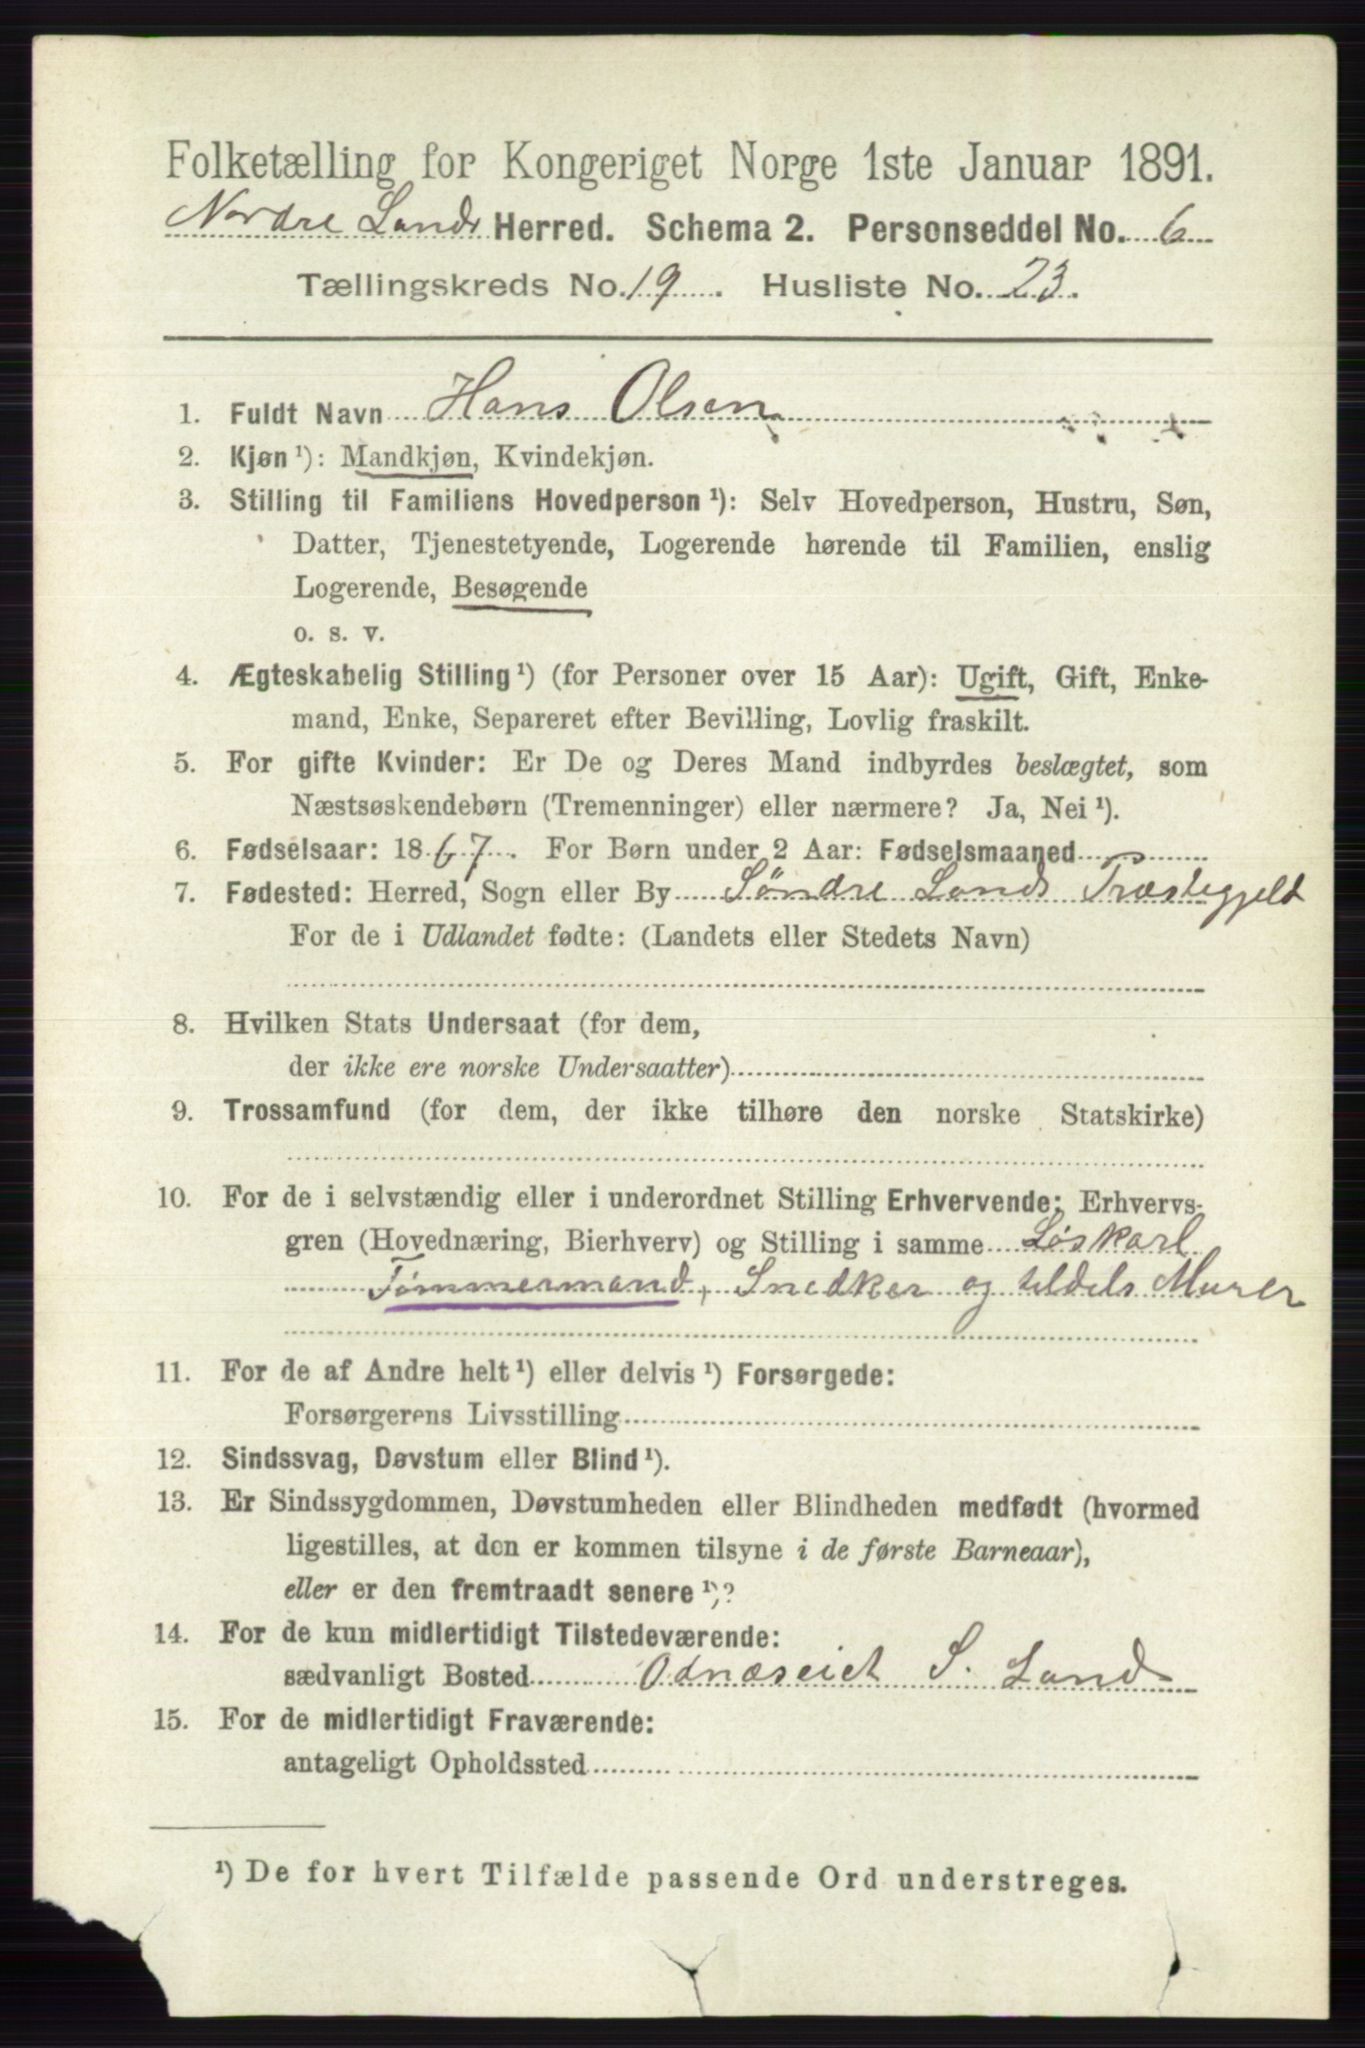 Folketælling for Kongeriget Norge 1ste Januar 1891.
Nordre Lands Herred. Schema 2. Personseddel No. 6
Tællingskreds No. 19. Husliste No. 23.
1. Fuldt Navn Hans Olsen
2. Kjøn ¹): Mandkjøn, Kvindekjøn.
3. Stilling til Familiens Hovedperson ¹): Selv Hovedperson, Hustru, Søn,
Datter, Tjenestetyende, Logerende hørende til Familien, enslig
Logerende, Besøgende
o. s. v.
4. Ægteskabelig Stilling ¹) (for Personer over 15 Aar): Ugift, Gift, Enke-
mand, Enke, Separeret efter Bevilling, Lovlig fraskilt.
5. For gifte Kvinder: Er De og Deres Mand indbyrdes beslægtet, som
Næstsøskendebørn (Tremenninger) eller nærmere? Ja, Nei ¹).
6. Fødselsaar: 1867. For Børn under 2 Aar: Fødselsmaaned
7. Fødested: Herred, Sogn eller By Søndre Lands Præstegjeld
For de i Udlandet fødte: (Landets eller Stedets Navn)
8. Hvilken Stats Undersaat (for dem,
der ikke ere norske Undersaatter)
9. Trossamfund (for dem, der ikke tilhøre den norske Statskirke)
10. For de i selvstændig eller i underordnet Stilling Erhvervende: Erhvervs-
gren (Hovednæring, Bierhverv) og Stilling i samme Løskarl
Tømmermand, Snedker og tildels Murer
11. For de af Andre helt ¹) eller delvis ¹) Forsørgede:
Forsørgerens Livsstilling
12. Sindssvag, Døvstum eller Blind ¹).
13. Er Sindssygdommen, Døvstumheden eller Blindheden medfødt (hvormed
ligestilles, at den er kommen tilsyne i de første Barneaar),
eller er den fremtraadt senere ¹)?
14. For de kun midlertidigt Tilstedeværende:
sædvanligt Bosted Odnæseiet S. Land
15. For de midlertidigt Fraværende:
antageligt Opholdssted
¹) De for hvert Tilfælde passende Ord understreges.